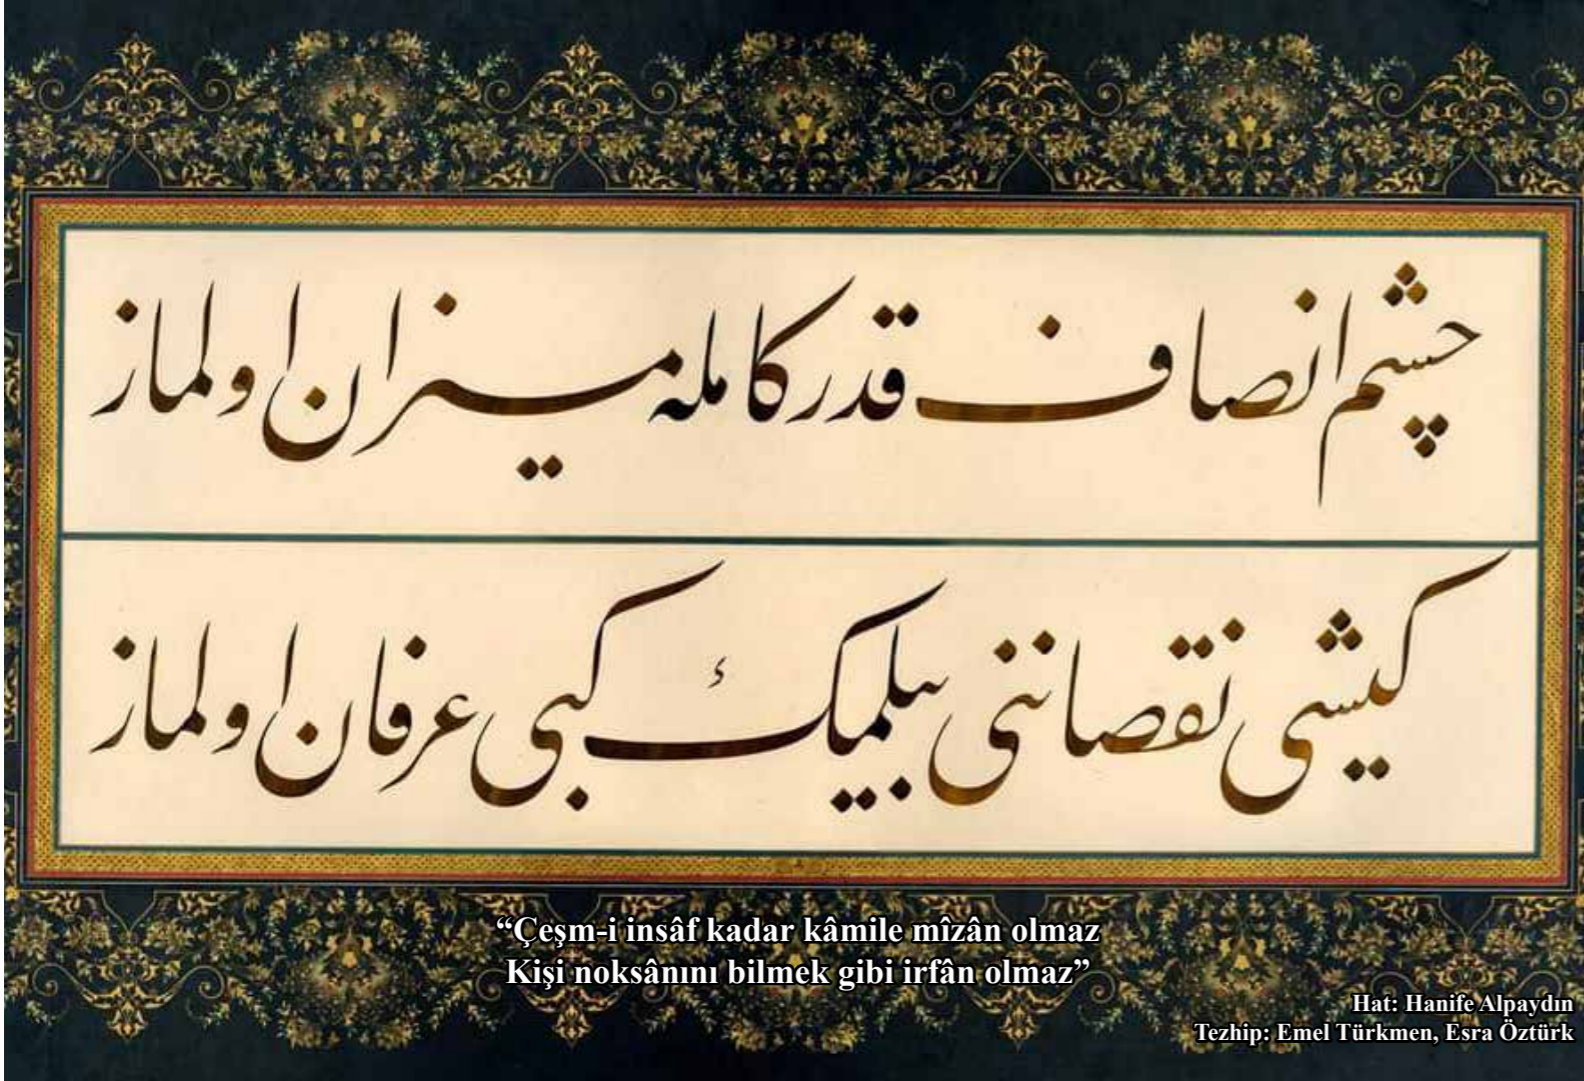 چشم انصاف قدر كامله ميزان اولماز
كيشى نقصاننى بيلمك كبى عرفان اولماز
“Çeşm-i insâf kadar kâmile mîzân olmaz
Kişi noksânını bilmek gibi irfân olmaz”
Hat: Hanife Alpaydın
Tezhip: Emel Türkmen, Esra Öztürk